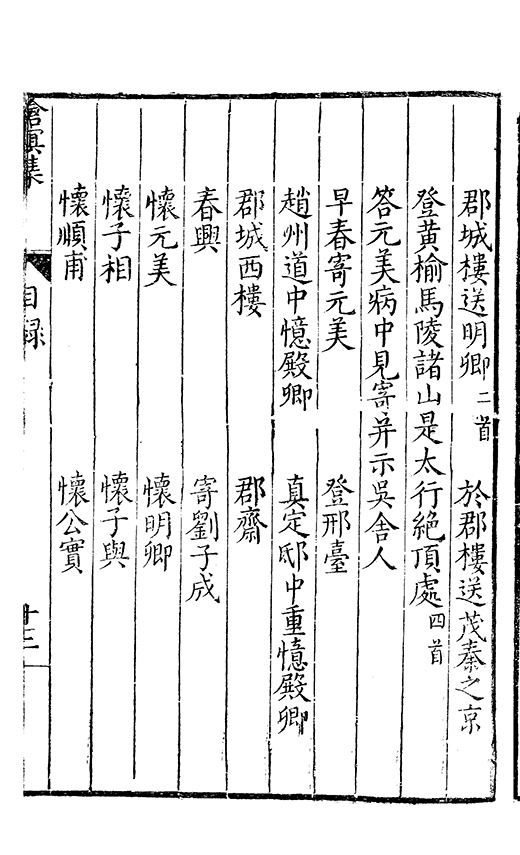 郡城樓送明卿二首　於郡樓送茂秦之京
登黄榆馬陵諸山是太行絶頂處四首
答元美病中見寄并示吳舍人
早春寄元美　登邢臺
趙州道中憶殿卿　真定邸中重憶殿卿
郡城西樓　郡齋
春興　寄劉子成
懷元美　懷明卿
懷子相　懷子與
懷順甫　懷公實
滄溟集　目録　十三